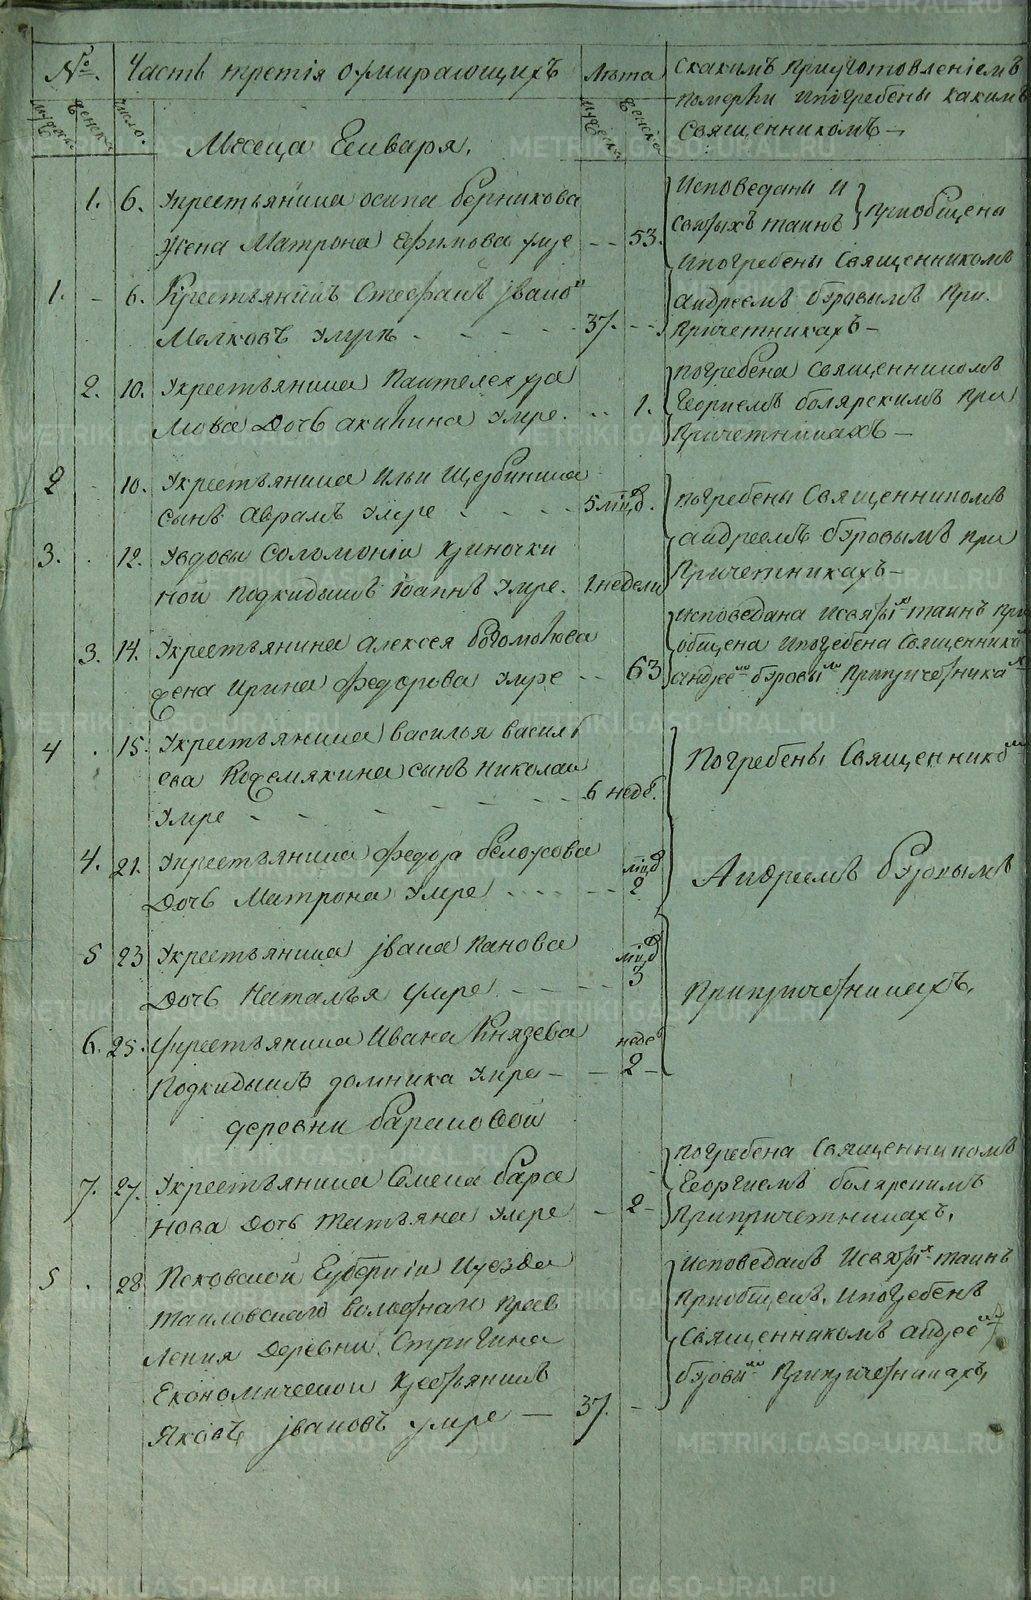 №. Часть третія оумирающихъ Лѣта Скакимъ приуготовленіемъ
померли ипогребены какимъ
священникомъ
мужеска женска число. мужеска женска
Месеца Генваря.
1. 6. Укрестьянина осипа
жена Матрона Ефимова умре 53.
Исповеданы и
святыхъ таинъ приобщены
ипогребены Священникомъ
андреемъ бѣровымъ при
причетникахъ
1. 6. Крестьянинъ Стефанъ Ивановъ
Мелковъ Умре 37.
2. 10. Укрестьянина Пантелея
дочь акилина Умре. 1.
погребена священникомъ
Георгиемъ болярскимъ при
причетникахъ
2 10. Укрестьянина Ильи Щербинина
сынъ Аврамъ Умре 5 мѣц.
погребены Священникомъ
андреемъ бѣровымъ при
причетникахъ
3. 12. Увдовы Соломоніи
ной подкидышъ Іоаннъ Умре. 1 недели
3. 14. Укрестьянина алексея
жена Ирина федорова Умре 63
исповедана исвятыхъ таинъ при
общена ипогребена Священникомъ
андреемъ бѣровымъ припричетникахъ
4 15. Укрестьянина василья василь
ева Кожемякина сынъ николай
Умре 6 неде.
Погребены Священникомъ
4. 21. Укрестьянина федора белоусова
Дочь Матрона Умре мѣц 2
Андреемъ бѣровымъ
5 23 Укрестьянина Ивана Панова
Дочь Наталья умре мѣц 3
припричетникахъ.
6. 25. Укрестьянина Ивана Князева
Подкидышъ домника Умре неде 2
деревни барановой
7. 27. Укрестьянина Семена бара
нова дочь татьяна Умре 2
погребена Священникомъ
Георгиемъ болярскимъ
припричетникахъ.
5 28 Псковской Губерніи Иуезда
волостнаго прав
ления деревни Стригина
Економической крестьянинъ
Яковъ Ивановъ умре 37.
Исповеданъ Исвятыхъ таинъ
приобщенъ. ипогребенъ
священникомъ андреемъ
бѣровымъ припричетникахъ
METRIKI.GASO-URAL.RU